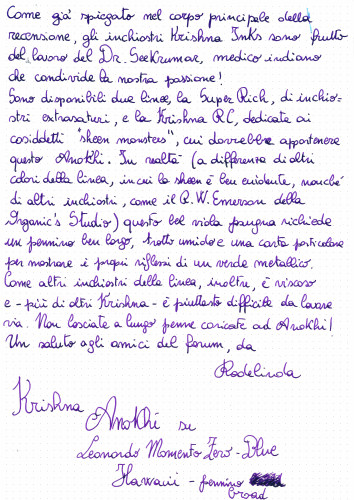 Come già spiegato nel corpo principale della
recensione, gli inchiostri Krishna Inks sono frutto
del lavoro del Dr. Sreekumar, medico indiano
che condivide la nostra passione!
Sono disponibili due linee, la Super Rich, di inchio-
stri extrasaturi, e la Krishna RC, dedicata ai
cosiddetti "sheen monsters", cui dovrebbe appartenere
questo Anokhi. In realtà (a differenza di altri
colori della linea, in cui lo sheen è ben evidente, nonché
di altri inchiostri, come il R.W. Emerson della
Organic's Studio) questo bel viola prugna richiede
un pennino ben largo, tratto umido e una carta particolare
per mostrare i propri riflessi di un verde metallico.
Come altri inchiostri della linea, inoltre, è viscoso
e - più di altri Krishna - è piuttosto difficile da lavare
via. Non lasciate a lungo penne caricate ad Anokhi!
Un saluto agli amici del forum, da
Radelinda
Krishna
Anokhi su
Leonardo Momento Zero - Blue
Hawaii - pennino
broad